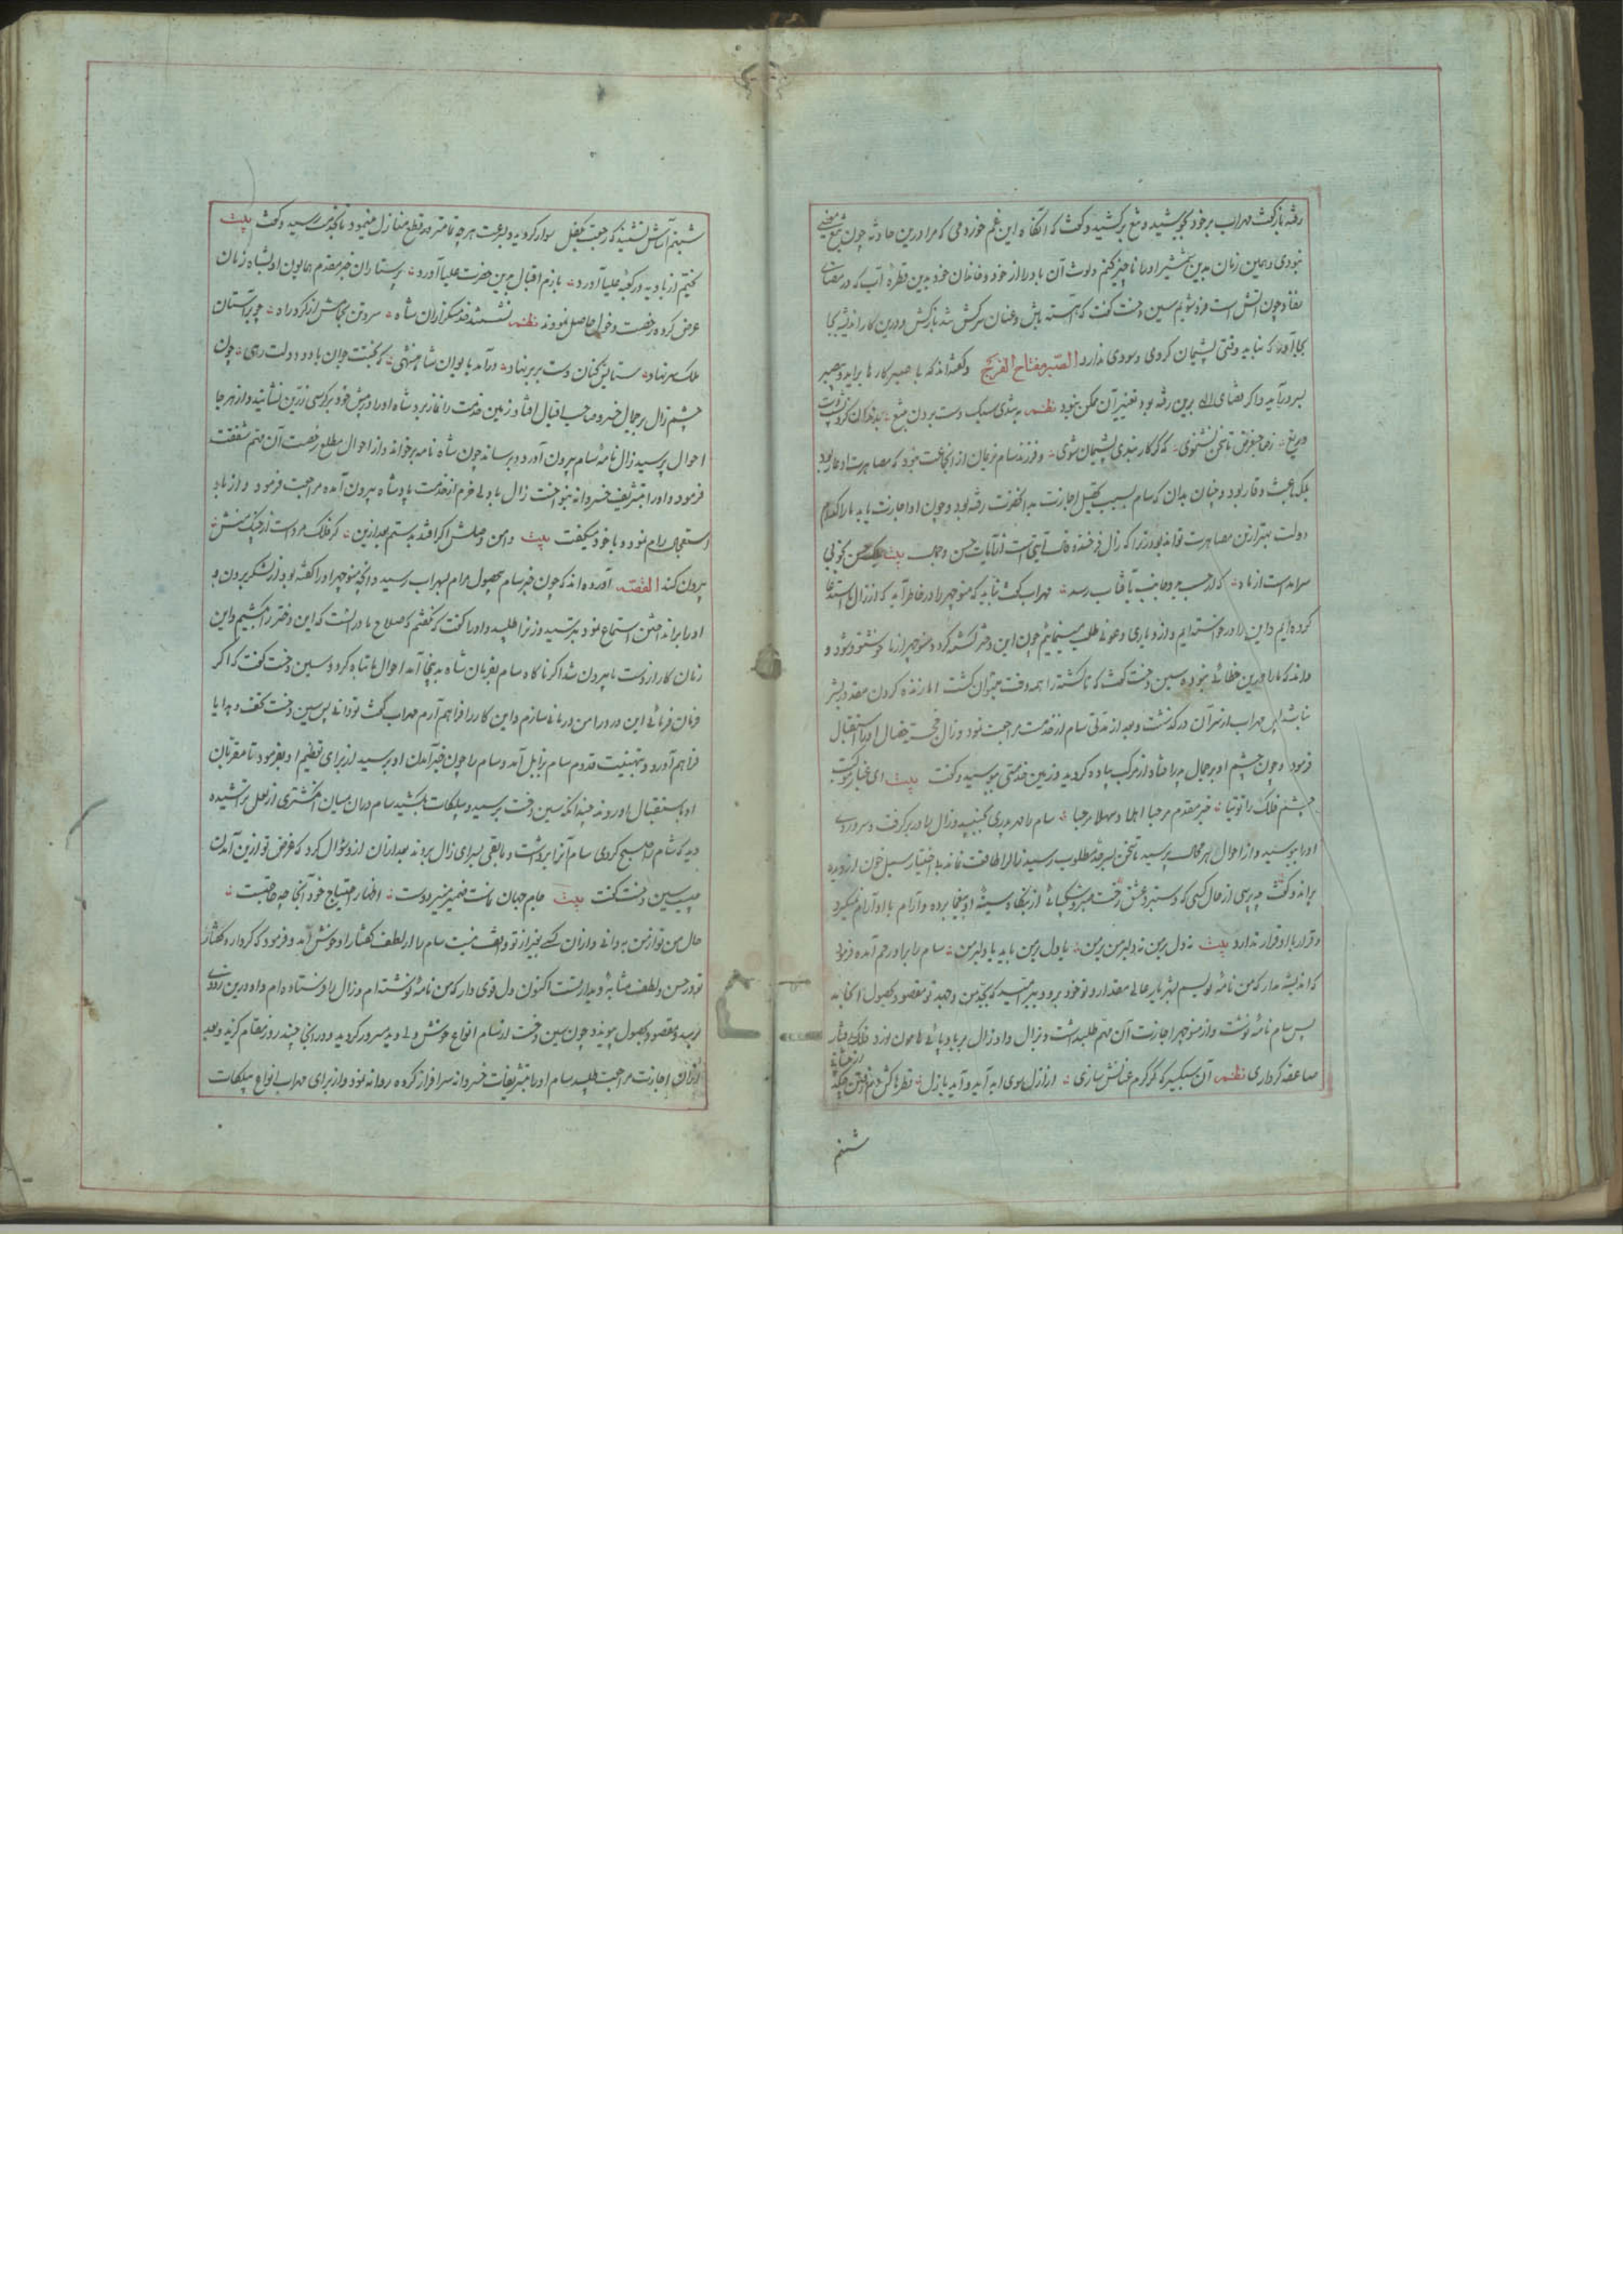 رفته بازگفت مهراب بر خود بجوشید و تیغ برکشید و گفت که آنگاه این غم خوردمی که مرا درین حادثه چون تیغ
نبودی و همین زمان بدین شمشیر او را ناچیز کنم و لوث آن بادرا از خود و خاندان خود بدین قطرهٔ آب که در مضای
چون آتش است فرو شویم سین دخت گفت که آهسته باش و عنان سرکش شد بازکش و درین کار اندیشه بجا
بجا آور که نباید وقتی پشیمان گردی و سودی ندارد الصبر مفتاح الفرج و گفته‌اند که با صبر کارها برآید و بصبر
بسر درآید و اگر قضای الهی برین رفته بود تغییر آن ممکن نبود نظم به تندی سبک دست بردن به تیغ بدندان گزد پشت دست
دریغ ز صاحب‌غرض تا سخن نشنوی که گر کار بندی پشیمان شوی و فرزند سام نریمان از آنجا عت نبود که مصاهرت او عار بود
بلکه باعث وقار بود و چنان بدان که سام بسبب تحصیل اجازت بدانحضرت رفته بود و چون او اجازت یابد ما را کدام
دولت بهتر ازین مصاهرت تواند بود زیرا که زال فرخنده فال آیتی است از آیات حسن و جمال بیت
سرآمدست از ماه که از حسب بر و جانب بآفتاب رسد مهراب گفت نباید که منوچهر را در خاطر آید که از زال ما استدعا
کرده‌ایم و این را درخواسته‌ایم و از و یاری و عونی طلب مینماییم چون این دختر کشته گردد منوچهر از ما خوشنود شود و
داند که ما را درین خطائی نبوده سین دخت گفت که ناکشته را همه وقت میتوان کشت اما زنده کردن مقدور بشر
نباشد پس مهراب از سر آن درگذشت و بعد از مدتی سام از خدمت مراجعت نمود و زال خجسته خصال او را استقبال
فرمود و چون چشم او بر جمال پدر افتاد از مرکب پیاده گردید و زمین خدمتی ببوسید و گفت بیت ای غبار موکبت
چشم فلک را توتیا خیر مقدم مرحبا اهلا و سهلا مرحبا سام را مهر پدری بجنبید و زال را در بر گرفت و سر و روی
او را ببوسید و از احوال بهر محال پرسید تا سخن بسر حد مطلوب رسید زال را طاقت نماند بی اختیار سیل خون از دیده
براند و گفت چه پرسی از حال کسی که دستبرد عشق رخت صبر و شکیبائی از بنگاه سینهٔ او بیغما برده و آرام با او آرام نمیگیرد
و قرار با او قرار ندارد بیت نه دل بر من نه دلبر من بر من یا دل بر من باید یا دلبر من سام را بر او رحم آمده فرمود
که اندیشه مدار که من نامهٔ نویسم بشهریار عالی مقدار و تو خود برو و ببر امید که بجد من و جهد تو مقصود بحصول انجامد
پس سام نامهٔ نوشت و از منوچهر اجازت آن مهم طلب داشت و بزال داد زال بر بادپائی هامون نورد فلک رفتار
صاعقه کرداری نظم آن سبکسیر که گر گرم عنانش سازی از ازل سوی ابد آید و آید بازل قطرها کش
شبنم
شبنم‌آساش نشیند گه رجعت بکفل سوار گردید و بسرعت هر چه تمامتر قطع منازل مینمود تا بکذا رسید و گفت بیت
بختیم ز بادیه در کعبهٔ علیا آورد بازم اقبال برین حضرت علیا آورد پرستاران خبر مقدم همایون او بشاه زمان
عرض کرده رخصت دخول حاصل نمودند نظم نشستند خدمتگزاران شاه سر و تن بجامش از گرد راه چو بر آستان
ملک سر نهاد ستایش کنان دست بر بر نهاد درآمد بایوان شاهنشهی که بختت جوان باد و دولت رهی چون
چشم زال بر جمال خسرو صاحب اقبال افتاد زمین خدمت را نماز برد شاه او را در پیش خود بر کرسی زرین نشانید و از هر جا
احوال پرسید زال نامه سام بیرون آورد و برساند چون شاه نامه برخواند و از احوال مطلع رخصت آن مهم شفقت
فرمود و او را بتشریف خسروانه بنواخت زال با دلی خرم از خدمت پادشاه بیرون آمده مراجعت فرمود و از باد
استعجال رام نمود و با خود میگفت بیت دامن وصلش اگر افتد بدستم بعد ازین گر فلک مردست از چنگ منش
بیرون کند القصه آورده‌اند که چون خبر سام بحصول مرام بمهراب رسید و آنچه منوچهر او را گفته بود از لشکر بردن و
او را براندختن استماع نمود بترسید و زن را طلبید و او را گفت که نگفتم که صلاح ما در آنست که این دختر را بکشیم و این
زمان کار از دست ما بیرون شد اگر ناگاه سام بفرمان شاه بدینجا آمد احوال ما تباه گردد سین دخت گفت که اگر
فرمان فرمائی این درد را من درمانی سازم و این کار را فراهم آرم مهراب گفت تو دانی پس سین دخت تحف و هدایا
فراهم آورد و بتهنیت قدوم سام بزابل آمد و سام را چون خبر آمدن او برسید از برای تعظیم او بفرمود تا مقربان
او باستقبال او روند چندانکه سین دخت برسید و پیلکات بکشید سام در آن میان انگشتری از لعل تراشیده
دید که شام را صبح کردی سام آنرا برداشت و باقی بسرای زال بردند بعد از آن ازو سؤال کرد که غرض تو ازین آمدن
چیست سین دخت گفت بیت جام جهان نماست ضمیر منیر دوست اظهار احتیاج خود آنجا چه حاجتست
حال من تو از من به دانی و از آن کسی بغیر از تو واقف نیست سام را از لطف گفتار او خوش آمد و فرمود که کردار و گفتار
تو در حسن و لطف مشابه و برابرست اکنون دل قوی دار که من نامهٔ نوشته‌ام و زال را فرستاده‌ام و او درین زودی
برسد و مقصود بحصول پیوندد چون سین دخت از سام انواع خوش دلی دید مسرور گردید و در آنجا چند روز مقام گزید و بعد
از آن اجازت مراجعت طلبید سام او را بتشریفات خسروانه سرافراز کرده روانه نمود و از برای مهراب انواع پیلکات